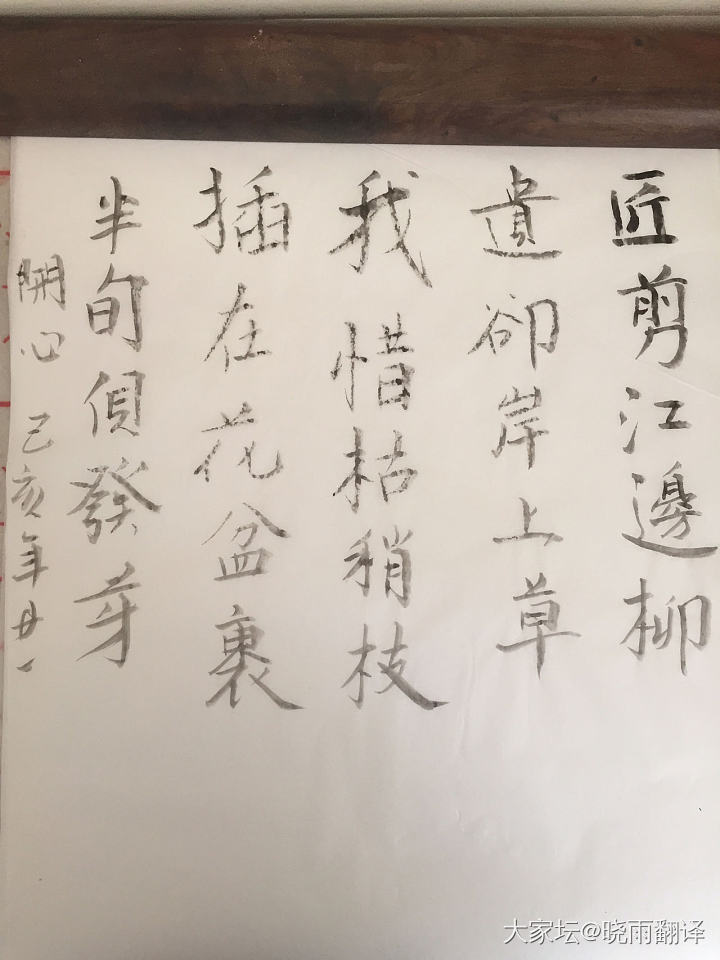 匠剪江邊柳
遺卻岸上草
我惜枯稍枝
插在花盆裹
半旬倶發芽
開心 己亥年廿一
大家坛@晓雨翻译